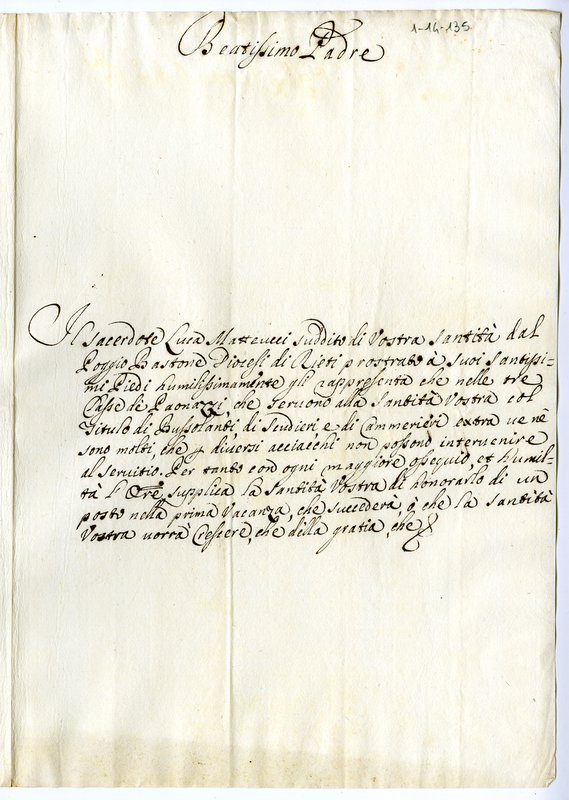 1-14-135
Beatissimo Padre
Il Sacerdote Luca Matteucci suddito di Vostra Santità dal
Poggio Bastone Diocesi di Rieti prostrato à suoi Santissi=
mi Piedi humilissimamente gli rappresenta che nelle tre
Classe di Paonazzi, che seruono alla Santità Vostra col
Titulo di Bussolanti di Scudieri e di Cammerieri extra ue nè
sono molti, che p diuersi acciacchi non possono interuenire
al seruitio. Per tanto con ogni maggiore ossequio, et Humil=
tà l' Ore supplica la Santità Vostra di honorarlo di un
posto nella prima Vacanza, che succederà, ò che la Santità
Vostra uorrà Crescere, che della gratia, che